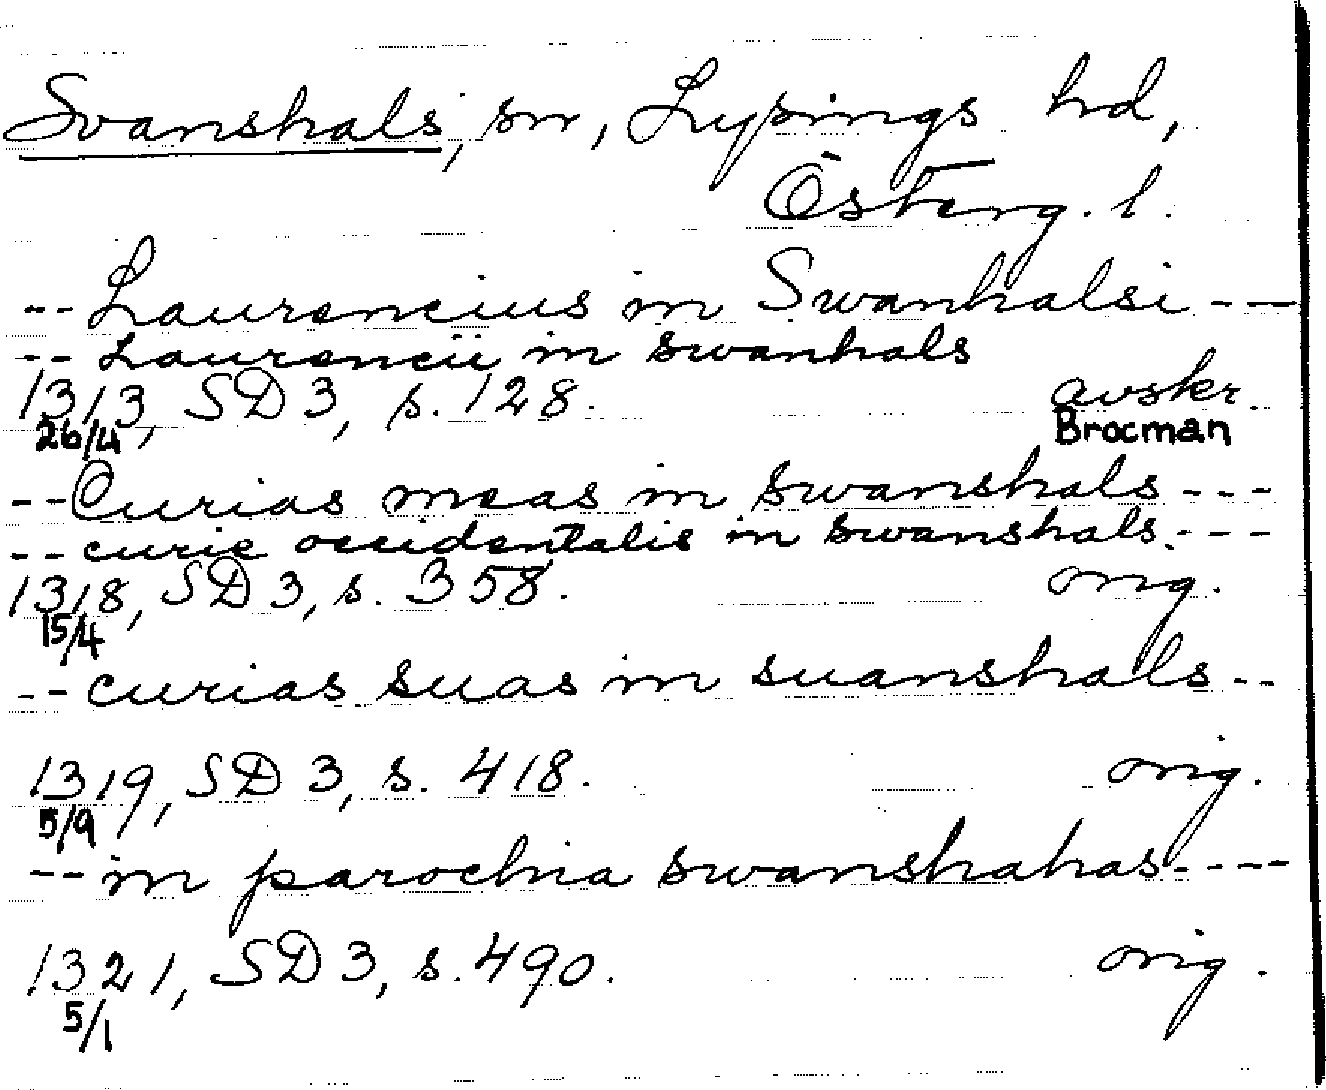 Svanshals, sn, Lysings hd,
Österg. l.
-- Laurencius in Swanhalsi ---
-- Laurencii in swanhals
1313, SD 3, s. 128. avskr.
26/4 Brocman
-- Curias meas in swanshals ---
-- curie occidentalis in swanshals. ---
1318, SD 3, s. 358. orig.
15/4
-- curias suas in suanshals --
1319, SD 3, s. 418. orig.
5/9
-- in parochia swanshahas. ---
1321, SD 3, s. 490. orig.
5/1